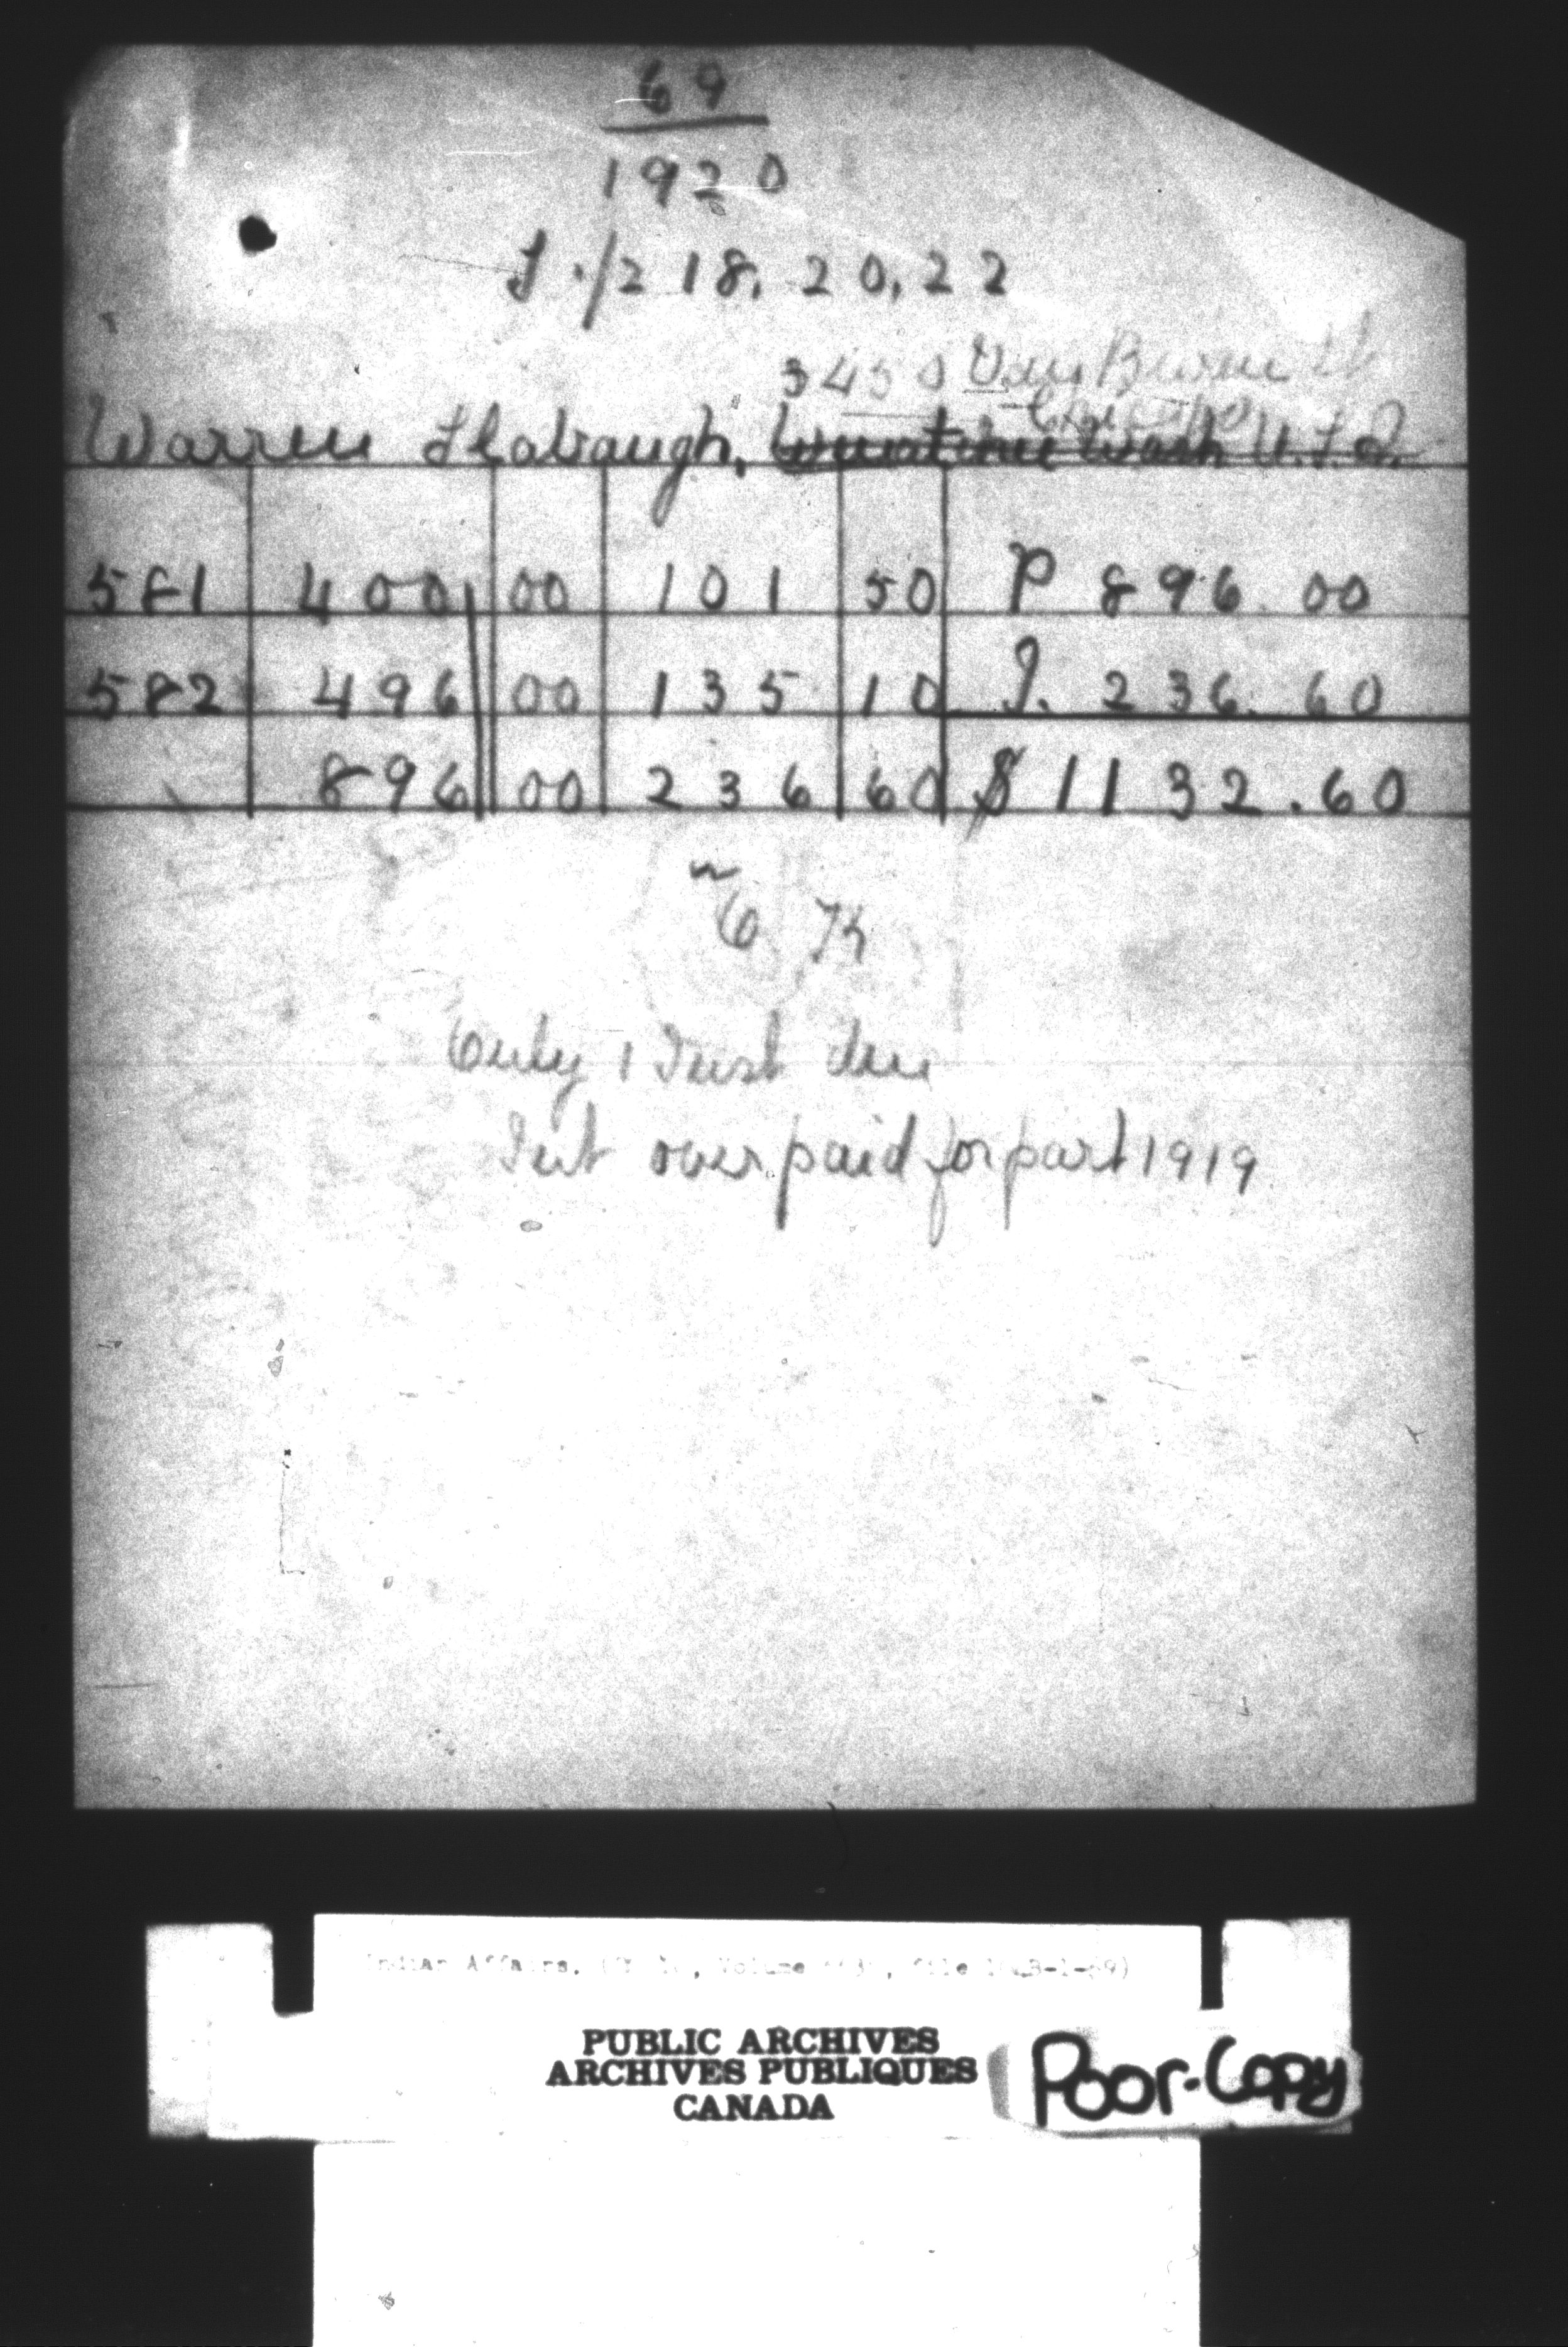 69
1920
J./218.20.22
3450 Van Buren St
Chicago
Warren Slabaugh, Wash U.S.A.
581 400 00 101 50 P 896.00
582 496 00 135 10 I. 236.60
896 00 236 60 $1132.60
Only 1 Inst due
Int over paid for part 1919
Indian Affairs.
PUBLIC ARCHIVES
ARCHIVES PUBLIQUES
CANADA
Poor-Copy